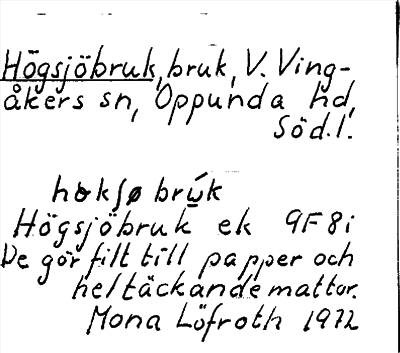 Högsjöbruk, bruk, V. Ving-
åkers sn, Oppunda hd,
Söd.l.
høkʃø brẃk
Högsjöbruk ek 9F8i
De gör filt till papper och
heltäckande mattor.
Mona Löfroth 1972